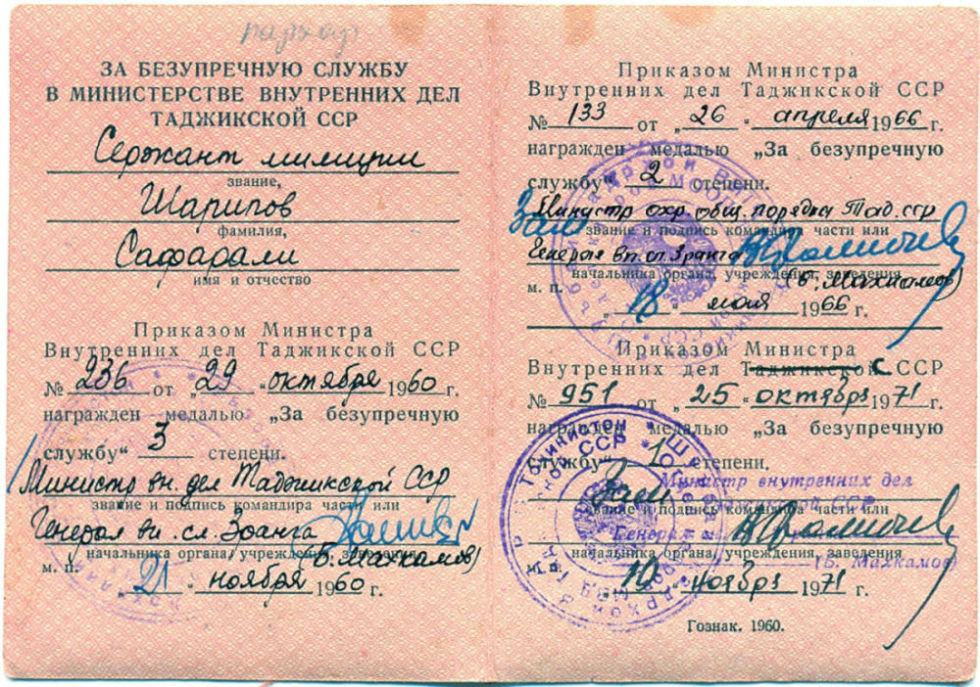 пархар
ЗА БЕЗУПРЕЧНУЮ СЛУЖБУ
В МИНИСТЕРСТВЕ ВНУТРЕННИХ ДЕЛ
ТАДЖИКСКОЙ ССР
Сержант милиции
звание,
Шарипов
фамилия,
Сафарали
имя и отчество
Приказом Министра
Внутренних дел Таджикской ССР
№ 236 от „29" октября 1960 г.
награжден медалью „За безупречную
службу" 3 степени.
Министр вн. дел Таджикской ССР
звание и подпись командира части или
Генерал вн. сл. 3 ранга
начальника органа, учреждения, заведения
(Б. Махкамов)
м. п. „21" ноября 1960 г.
Приказом Министра
Внутренних дел Таджикской ССР
№ 133 от „26" апреля 1966 г.
награжден медалью „За безупречную
службу" 2 степени.
Зам Министр охр. общ. порядка Тад. сср
звание и подпись командира части или
Генерал вн. сл. 3 ранга
начальника органа, учреждения, заведения
(Б. Махкамов)
м. п. „18" мая 1966 г.
Приказом Министра
Внутренних дел Таджикской ССР
№ 951 от „25" октября 1971 г.
награжден медалью „За безупречную
службу" 1 степени.
Зам Министр внутренних дел
звание и подпись командира части или
Генерал
начальника органа, учреждения, заведения
(Б. Махкамов)
„10" ноября 1971 г.
Гознак. 1960.